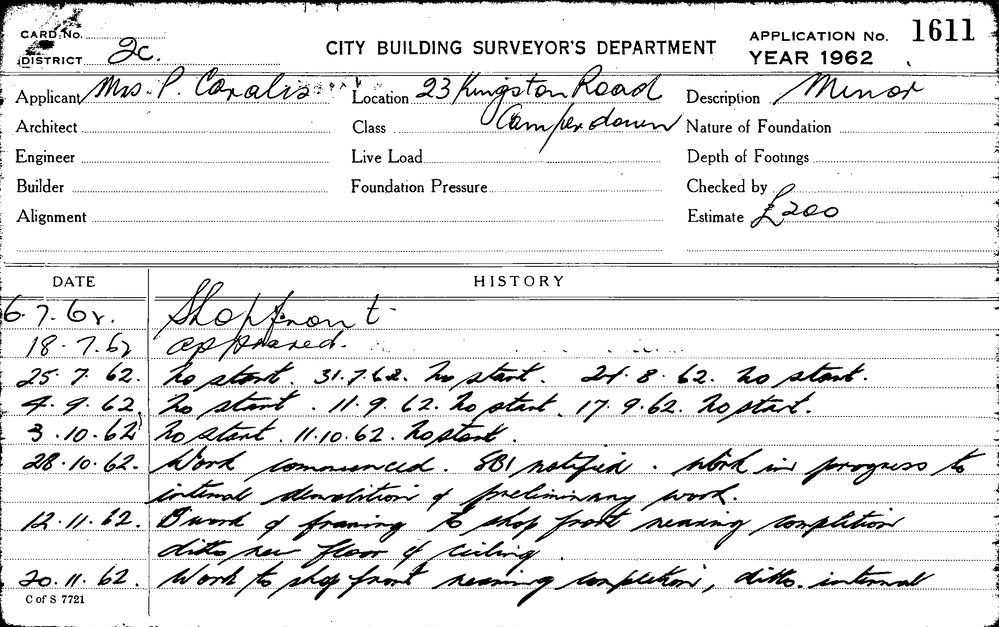 CARD No.
DISTRICT 2c.
CITY BUILDING SURVEYOR'S DEPARTMENT
APPLICATION No. 1611
YEAR 1962
Applicant Mrs. P. Coralis Location 23 Kingston Road Description Minor
Architect Class Camperdown Nature of Foundation
Engineer Live Load Depth of Footings
Builder Foundation Pressure Checked by
Alignment Estimate £200
DATE HISTORY
6.7.62. Shopfront -
18.7.62 approved.
25.7.62. No start. 31.7.62. No start. 24.8.62. No start.
4.9.62. No start. 11.9.62. No start. 17.9.62. No start.
3.10.62 No start. 11.10.62. No start.
28.10.62. Work commenced. SBI notified. Work in progress to
internal demolition & preliminary work.
12.11.62. work & framing to shop front nearing completion
ditto new floor & ceiling.
20.11.62. Work to shop front nearing completion, ditto internal
C of S 7721